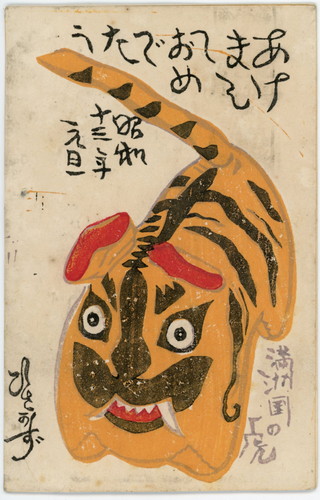 あけ
まし
て
おめ
でたう
昭和
十三年
元旦
満洲国の虎
ひさかず